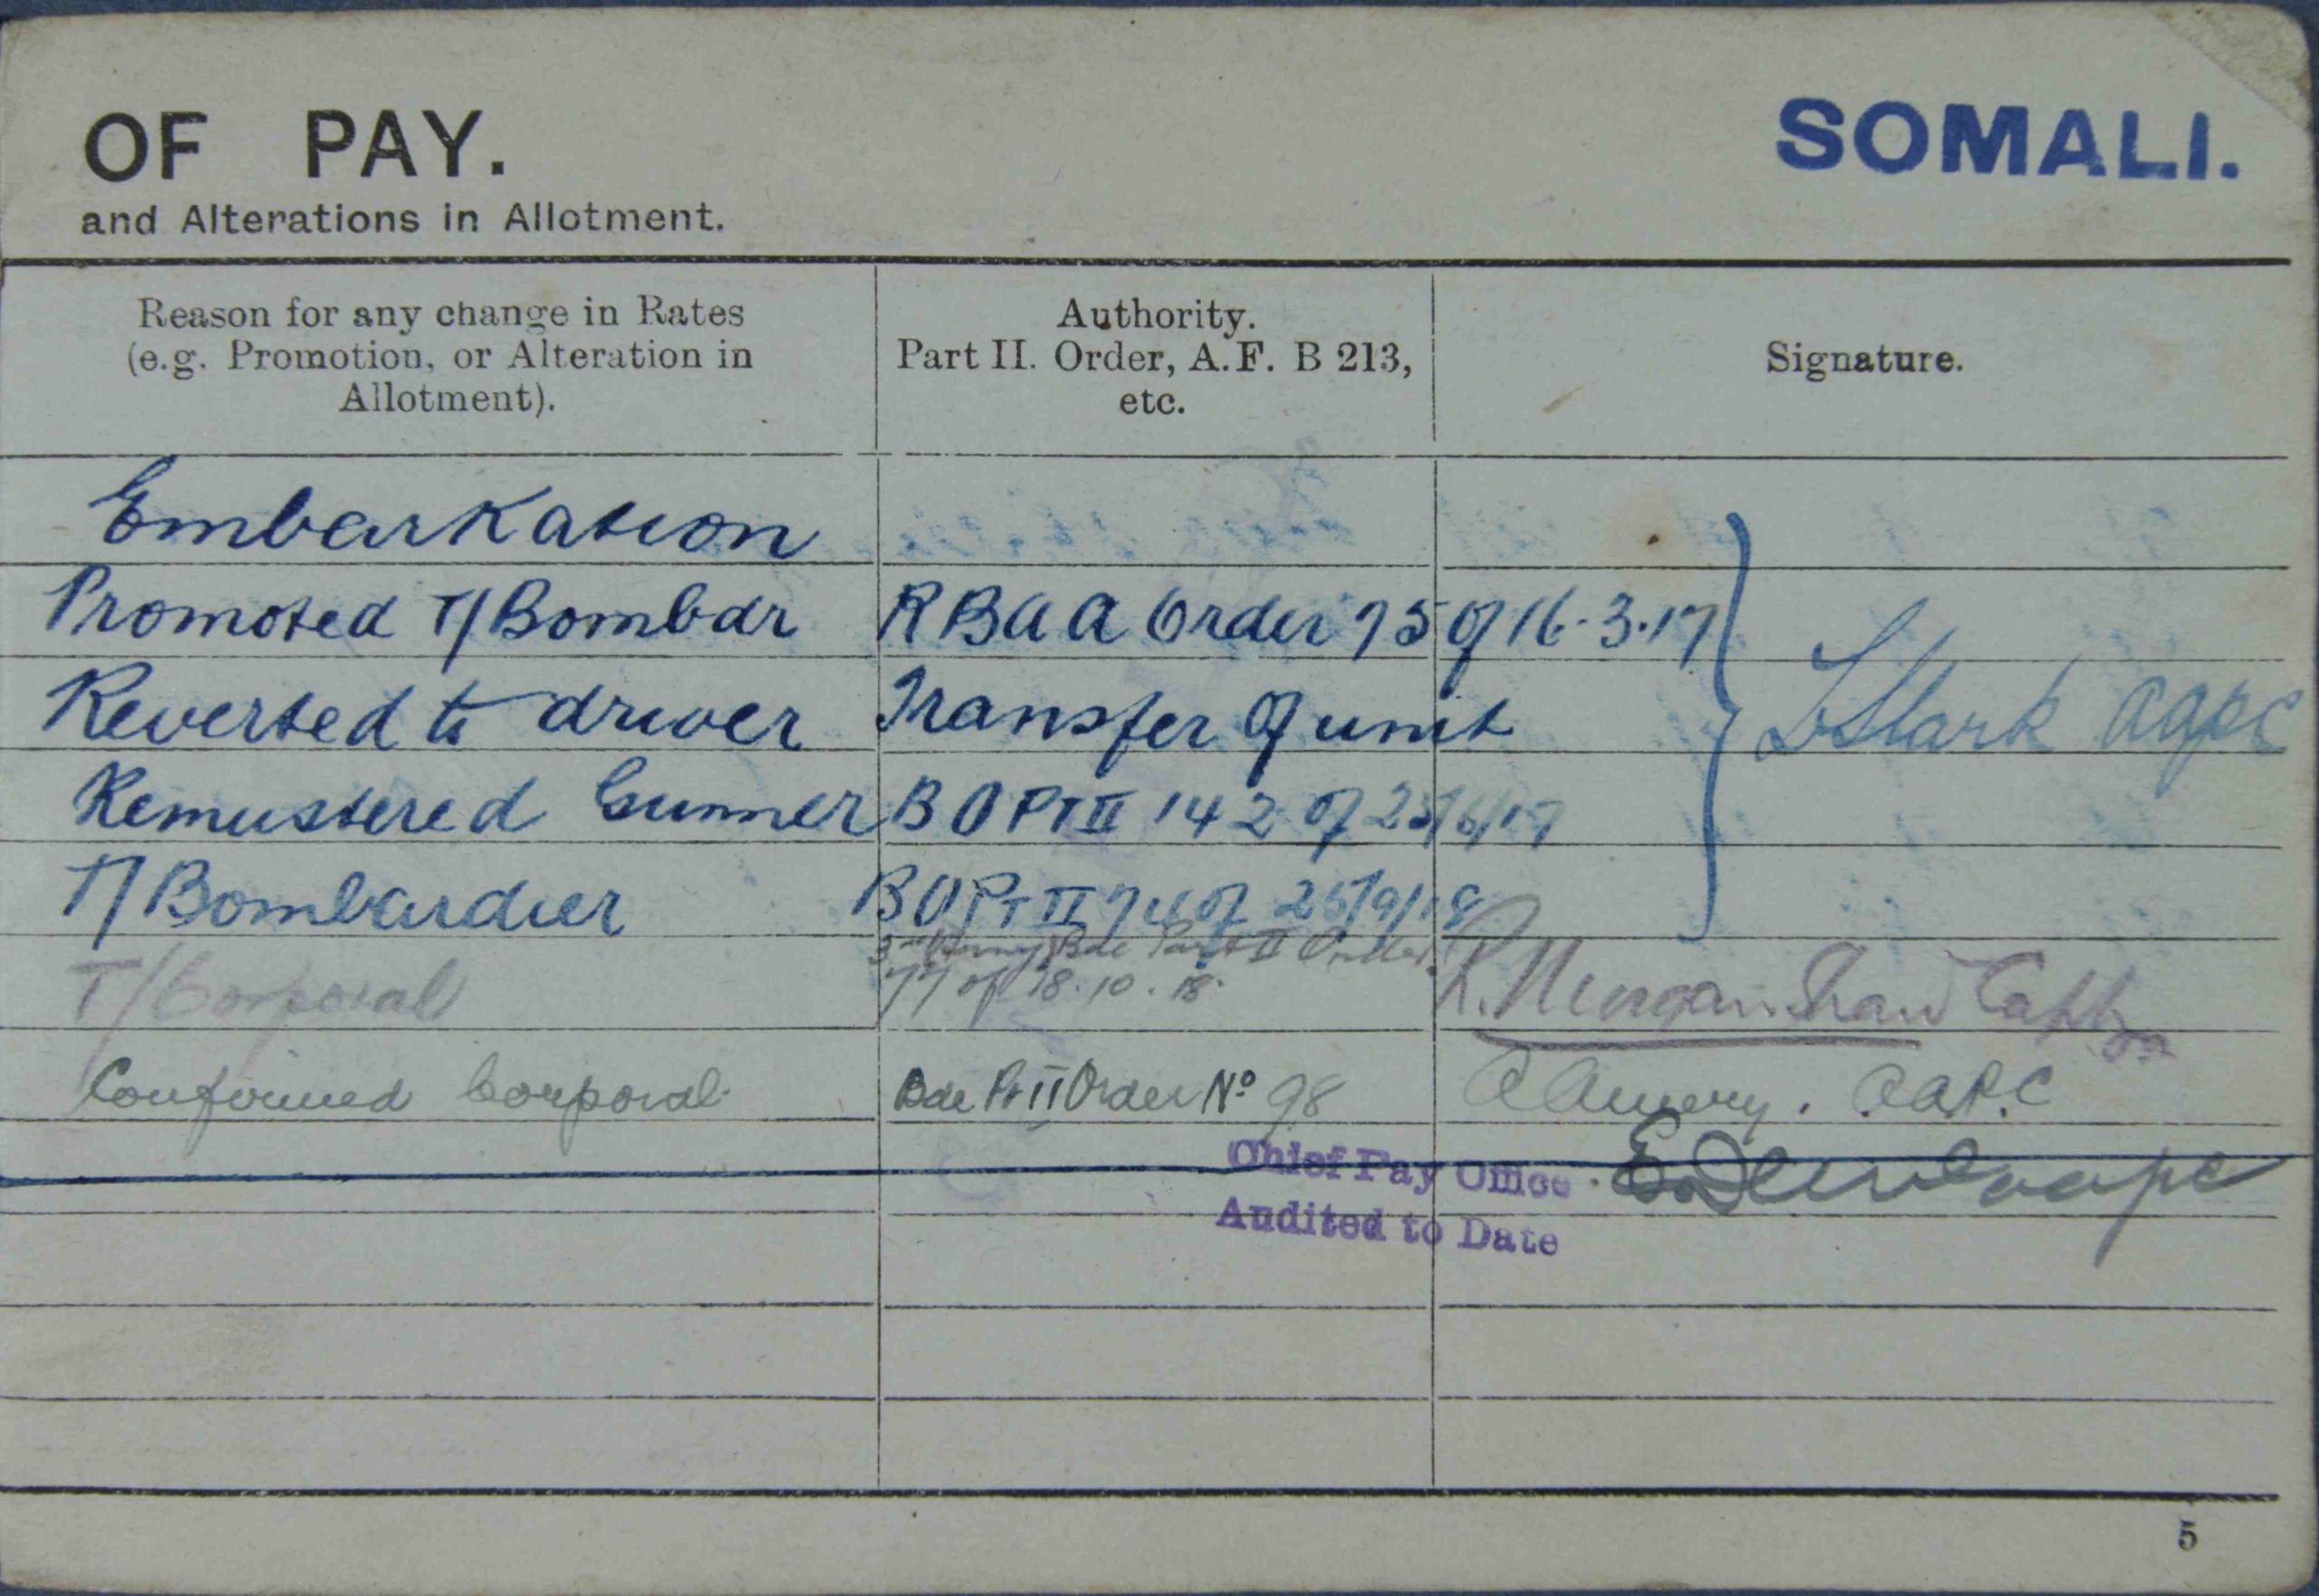 OF PAY.
SOMALI.
and Alterations in Allotment.
Reason for any change in Rates
(e.g. Promotion, or Alteration in
Allotment).
Authority.
Part II. Order, A.F. B 213,
etc.
Signature.
Embarkation
Promoted T/Bombdr RBAA Order 75 of 16.3.17
Reverted to driver Transfer of unit
Stark AAPC
Remustered Gunner BO Pt II 142 of /6/17
T/Bombardier BO Pt II 74 of 25/9/18
T/Corporal
3rd Army Bde Part II Order
77 of 18.10.18.
R. Morgan Shaw Capt
Confirmed Corporal Bde Pt II Order No 98 AAPC
Chief Pay Office
Audited to Date
5